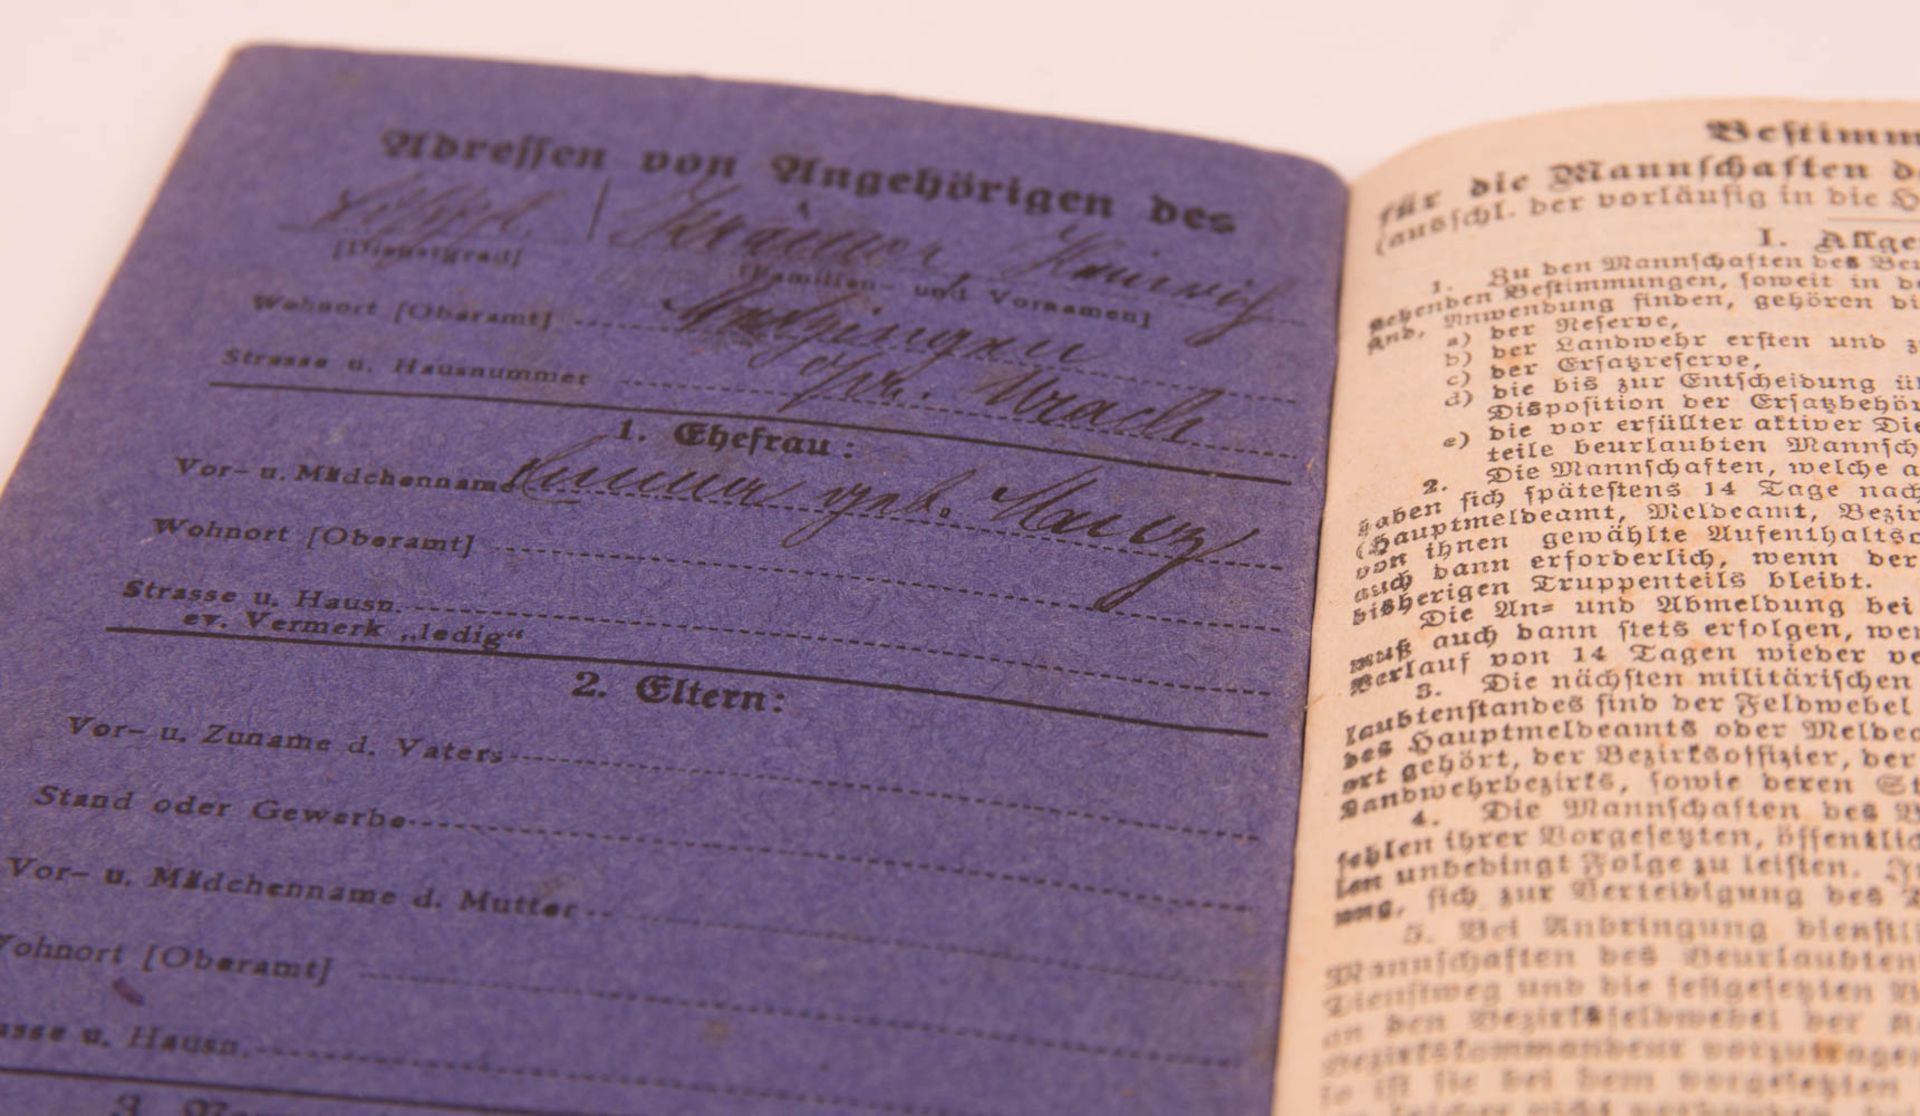 Adressen von Angehörigen des
Krämer, Heinrich
[Dienstgrad] [Familien- und Vornamen]
Wohnort [Oberamt] Metzingen
Strasse u. Hausnummer O/A. Urach
1. Ehefrau:
Vor- u. Mädchenname geb.
Wohnort [Oberamt]
Strasse u. Hausn.
ev. Vermerk „ledig“
2. Eltern:
Vor- u. Zuname d. Vaters
Stand oder Gewerbe
Vor- u. Mädchenname d. Mutter
Wohnort [Oberamt]
asse u. Hausn.
3.
Bestimm
für die Mannschaften d
(ausschl. der vorläufig in die H
I. Allge
1. Zu den Mannschaften des Beu
gehenden Bestimmungen, soweit in de
sind, Anwendung finden, gehören di
a) der Reserve,
b) der Landwehr ersten und z
c) der Ersatzreserve,
d) die bis zur Entscheidung üb
Disposition der Ersatzbehör
e) die vor erfüllter aktiver Die
teile beurlaubten Mannsch
2. Die Mannschaften, welche a
haben sich spätestens 14 Tage nach
(Hauptmeldeamt, Meldeamt, Bezir
von ihnen gewählte Aufenthaltso
auch dann erforderlich, wenn der
bisherigen Truppenteils bleibt.
Die An= und Abmeldung bei
muß auch dann stets erfolgen, wen
Verlauf von 14 Tagen wieder ve
3. Die nächsten militärischen
laubtenstandes sind der Feldwebel
des Hauptmeldeamts oder Meldea
ort gehört, der Bezirksoffizier, der
Landwehrbezirks, sowie deren St
4. Die Mannschaften des B
fehlen ihrer Vorgesetzten, öffentlic
len unbedingt Folge zu leisten. I
weg, sich zur Verteidigung des
5. Bei Anbringung dienstli
Mannschaften des Beurlaubten
Dienstweg und die festgesetzten
an den Bezirksfeldwebel der
Bezirkskommandeur vorzutragen
so ist sie bei dem vorgesetzten